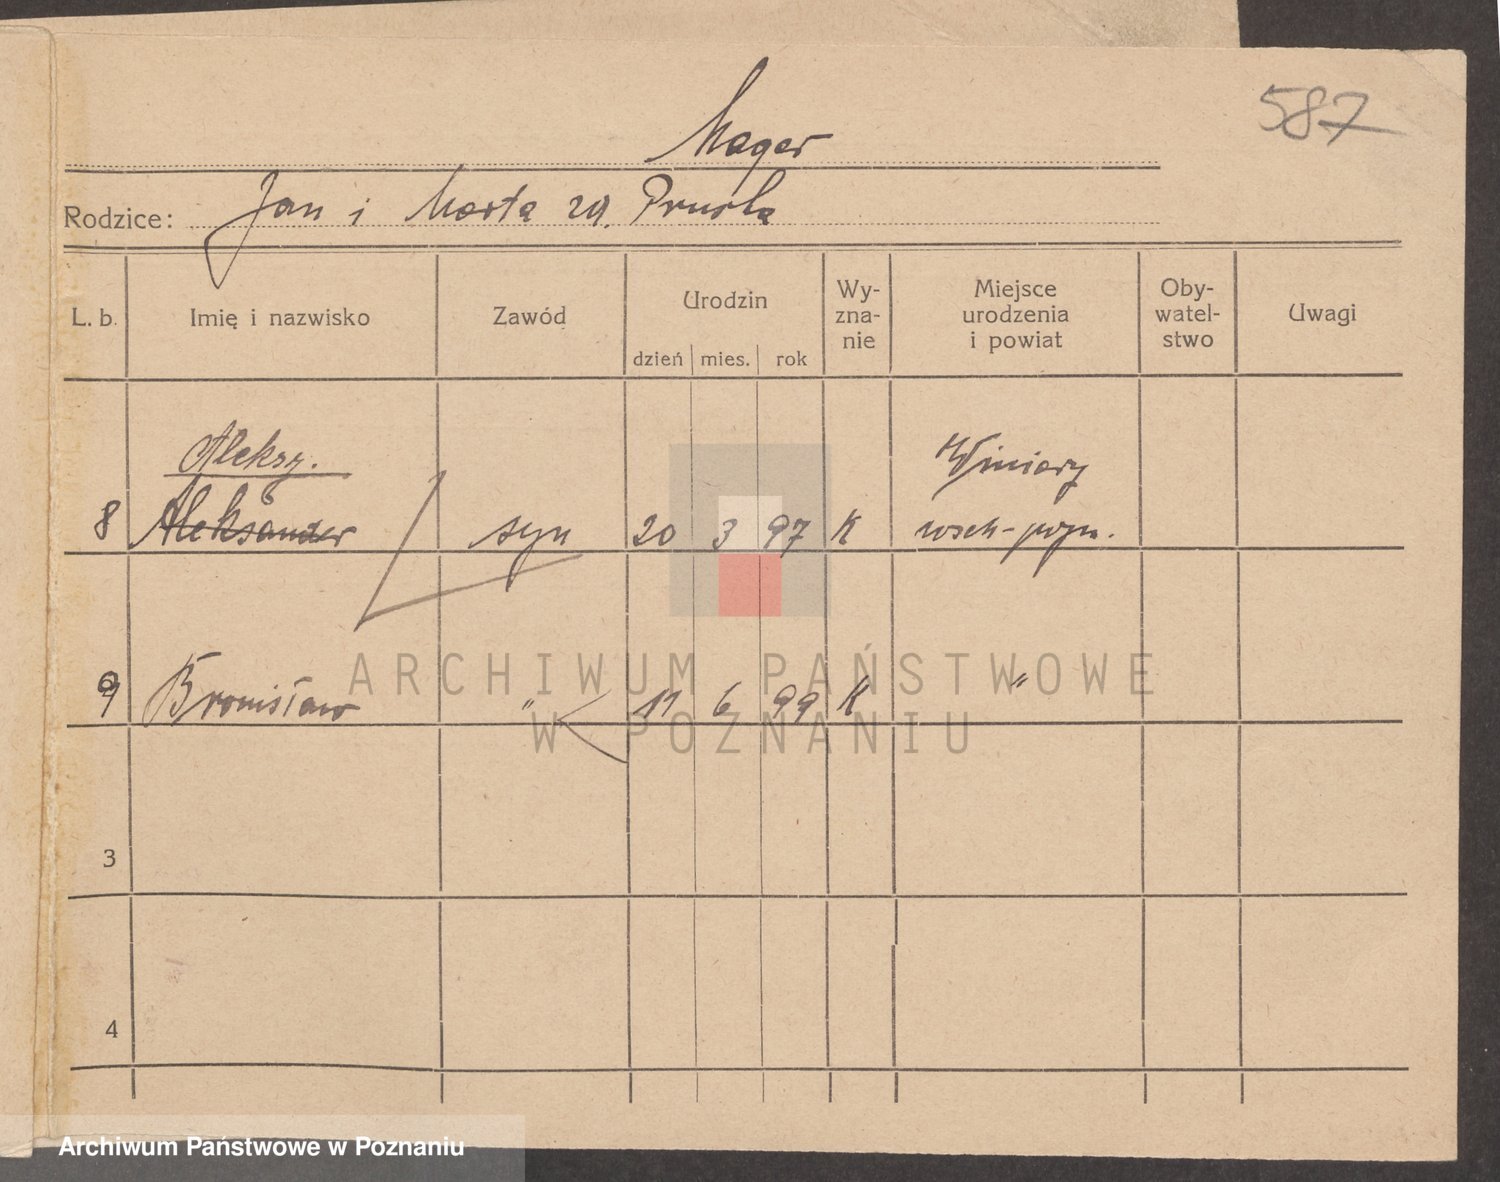 587
Mager
Rodzice: Jan i Marta zd. Pruska
L. b. Imię i nazwisko Zawód Urodzin Wy-zna-nie Miejsce urodzenia i powiat Oby-watel-stwo Uwagi
dzień mies. rok
Aleksy. Winiary
8 Aleksander syn 20 3 97 K wsch-pozn.
9 Bronisław " 11 6 99 K "
3
4
ARCHIWUM PAŃSTWOWE
W POZNANIU
Archiwum Państwowe w Poznaniu